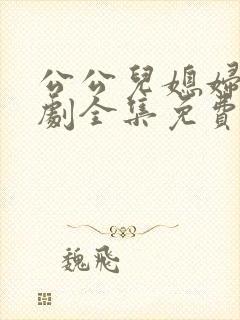 公公兒媳婦
劇全集免費
魏飛